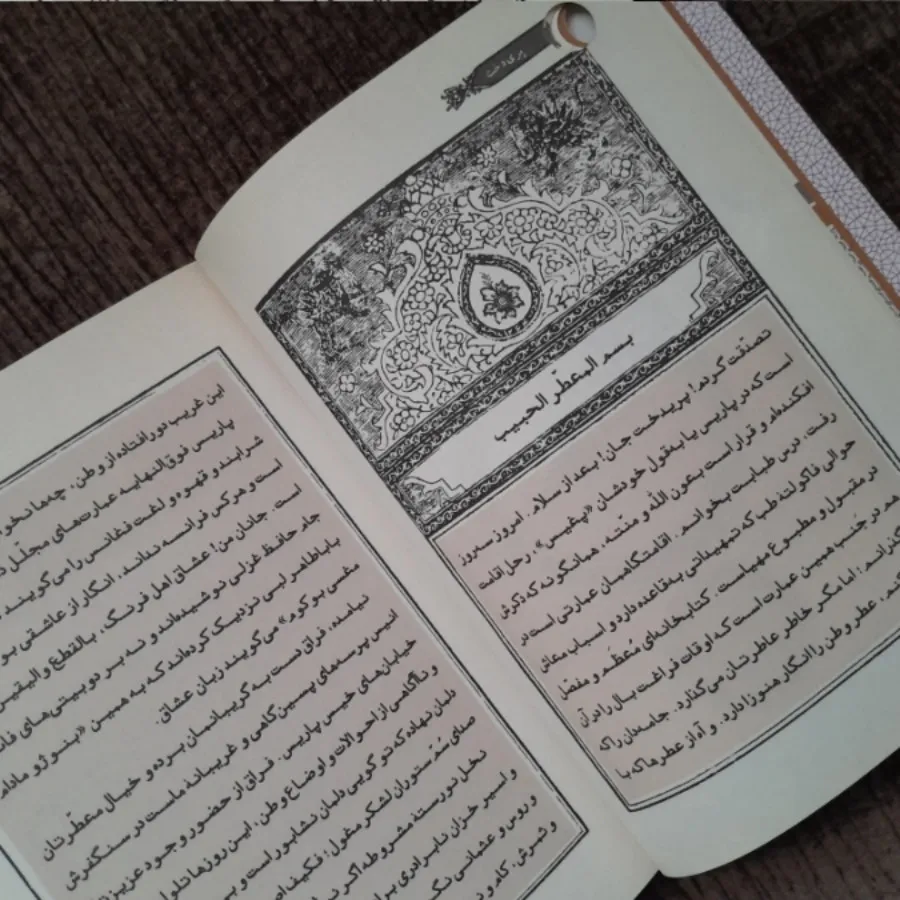 پری دخت
بسم المعطّر الحبیب
تصدّقت گردم! پریدخت جان! بعد از سلام. امروز سه روز
است که در پاریس یا به قول خودشان «پَغیس»، رحل اقامت
افکنده‌ام و قرار است بعون اللّه و منّته، همانگونه که ذکرش
رفت، درس طبابت بخوانم. اقامتگاهمان عمارتی است در
حوالی فاکولتهٔ طب که تمهیداتی به قاعده دارد و اسباب معاش
در مقبول و مطبوع مهیاست. کتابخانه‌ای مُعظّم و مفصّل
هم در جَنب همین عمارت است که اوقات فراغت بال را در آن
گذرانم؛ اما مگر خاطر عاطرتان می‌گذارد. جامه‌دان را که
عطر وطن را انگار هنوز دارد. و آه از عطر ها که با
این غریب دور افتاده از وطن، چه‌ها
پاریس فوق النهایه عبارت‌های مجلّل
شرابند و قهوه و لغت نغانس را می‌گویند
است و هرکس فرانسه نداند، انگار از عاشقی
است. جانان من! عشاق اهل فرنگ، بالقطع و الیقین
جام حافظ غزلی ننوشیده‌اند و نه بر دوبیتی‌های
باباطاهر لبی تزدیک کرده‌اند که به همین «بنوژو مادام
مغسی بوکو» می‌گویند زبان عشاق.
نیامده، فراق دست به گریبانمان برده و خیال معطّرتان
انیس پرسه‌های پسین‌گاهی و غریبانهٔ ماست در سنگفرش
خیابان‌های خیس پاریس. فراق از حضور وجود عزیزتان
و ناآگاهی از احوالات و اوضاع وطن، این روزها
دلمان نهاده که تو گویی دلمان نشابور است و
صدای سُمّ ستوران لشکر مغول؛
نخل نورستهٔ مشروطه اگر
و اسیر خزان نابرادری
و روس و عثمانی
و شهرش، کام و